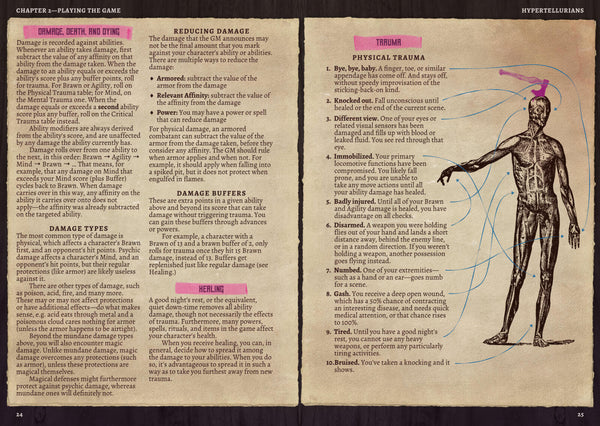 CHAPTER 2—PLAYING THE GAME
DAMAGE, DEATH, AND DYING
Damage is recorded against abilities.
Whenever an ability takes damage, first
subtract the value of any affinity on that
ability from the damage taken. When the
damage to an ability equals or exceeds the
ability's score plus any buffer points, roll
for trauma. For Brawn or Agility, roll on
the Physical Trauma table; for Mind, on
the Mental Trauma one. When the
damage equals or exceeds a second ability
score plus any buffer, roll on the Critical
Trauma table instead.
Ability modifiers are always derived
from the ability's score, and are unaffected
by any damage the ability currently has.
Damage rolls over from one ability to
the next, in this order: Brawn → Agility →
Mind → Brawn → ... That means, for
example, that any damage on Mind that
exceeds your Mind score (plus Buffer)
cycles back to Brawn. When damage
carries over in this way, any affinity on the
ability it carries over onto does not
apply—the affinity was already subtracted
on the targeted ability.
DAMAGE TYPES
The most common type of damage is
physical, which affects a character's Brawn
first, and an opponent's hit points. Psychic
damage affects a character's Mind, and an
opponent's hit points, but their regular
protections (like armor) are likely useless
against it.
There are other types of damage, such
as poison, acid, fire, and many more.
These may or may not affect protections
or have additional effects—do what makes
sense, e.g. acid eats through metal and a
poisonous cloud cares nothing for armor
(unless the armor happens to be airtight).
Beyond the mundane damage types
above, you will also encounter magic
damage. Unlike mundane damage, magic
damage overcomes any protections (such
as armor), unless these protections are
magical themselves.
Magical defenses might furthermore
protect against psychic damage, whereas
mundane ones will definitely not.
24
REDUCING DAMAGE
The damage that the GM announces may
not be the final amount that you mark
against your character's ability or abilities.
There are multiple ways to reduce the
damage:
♦ Armored: subtract the value of the
armor from the damage
♦ Relevant Affinity: subtract the value of
the affinity from the damage
♦ Power: You may have a power or spell
that can reduce damage
For physical damage, an armored
combatant can subtract the value of the
armor from the damage taken, before they
consider any affinity. The GM should rule
when armor applies and when not. For
example, it should apply when falling into
a spiked pit, but it does not protect when
engulfed in flames.
DAMAGE BUFFERS
These are extra points in a given ability
above and beyond its score that can take
damage without triggering trauma. You
can gain these buffers through advances
or powers.
For example, a character with a
Brawn of 13 and a brawn buffer of 2, only
rolls for trauma once they hit 15 Brawn
damage, instead of 13. Buffers get
replenished just like regular damage (see
Healing.)
HEALING
A good night's rest, or the equivalent,
quiet down-time removes all ability
damage, though not necessarily the effects
of trauma. Furthermore, many powers,
spells, rituals, and items in the game affect
your character's health.
When you receive healing, you can, in
general, decide how to spread it among
the damage to your abilities. When you do
so, it's advantageous to spread it in such a
way as to take you furthest away from new
trauma.
HYPERTELLURIANS
TRAUMA
PHYSICAL TRAUMA
1. Bye, bye, baby. A finger, toe, or similar
appendage has come off. And stays off,
without speedy improvisation of the
sticking-back-on kind.
2. Knocked out. Fall unconscious until
healed or the end of the current scene.
3. Different view. One of your eyes or
related visual sensors has been
damaged and fills up with blood or
leaked fluid. You see red through that
eye.
4. Immobilized. Your primary
locomotive functions have been
compromised. You likely fall
prone, and you are unable to
take any move actions until all
your ability damage has healed.
5. Badly injured. Until all of your Brawn
and Agility damage is healed, you have
disadvantage on all checks.
6. Disarmed. A weapon you were holding
flies out of your hand and lands a short
distance away, behind the enemy line,
or in a random direction. If you weren't
holding a weapon, another possession
goes flying instead.
7. Numbed. One of your extremities—
such as a hand or an ear—goes numb
for a scene.
8. Gash. You receive a deep open wound,
which has a 50% chance of contracting
an interesting disease, and needs quick
medical attention, or that chance rises
to 100%.
9. Tired. Until you have a good night's
rest, you cannot use any heavy
weapons, or perform any particularly
tiring activities.
10. Bruised. You've taken a knocking and it
shows.
25